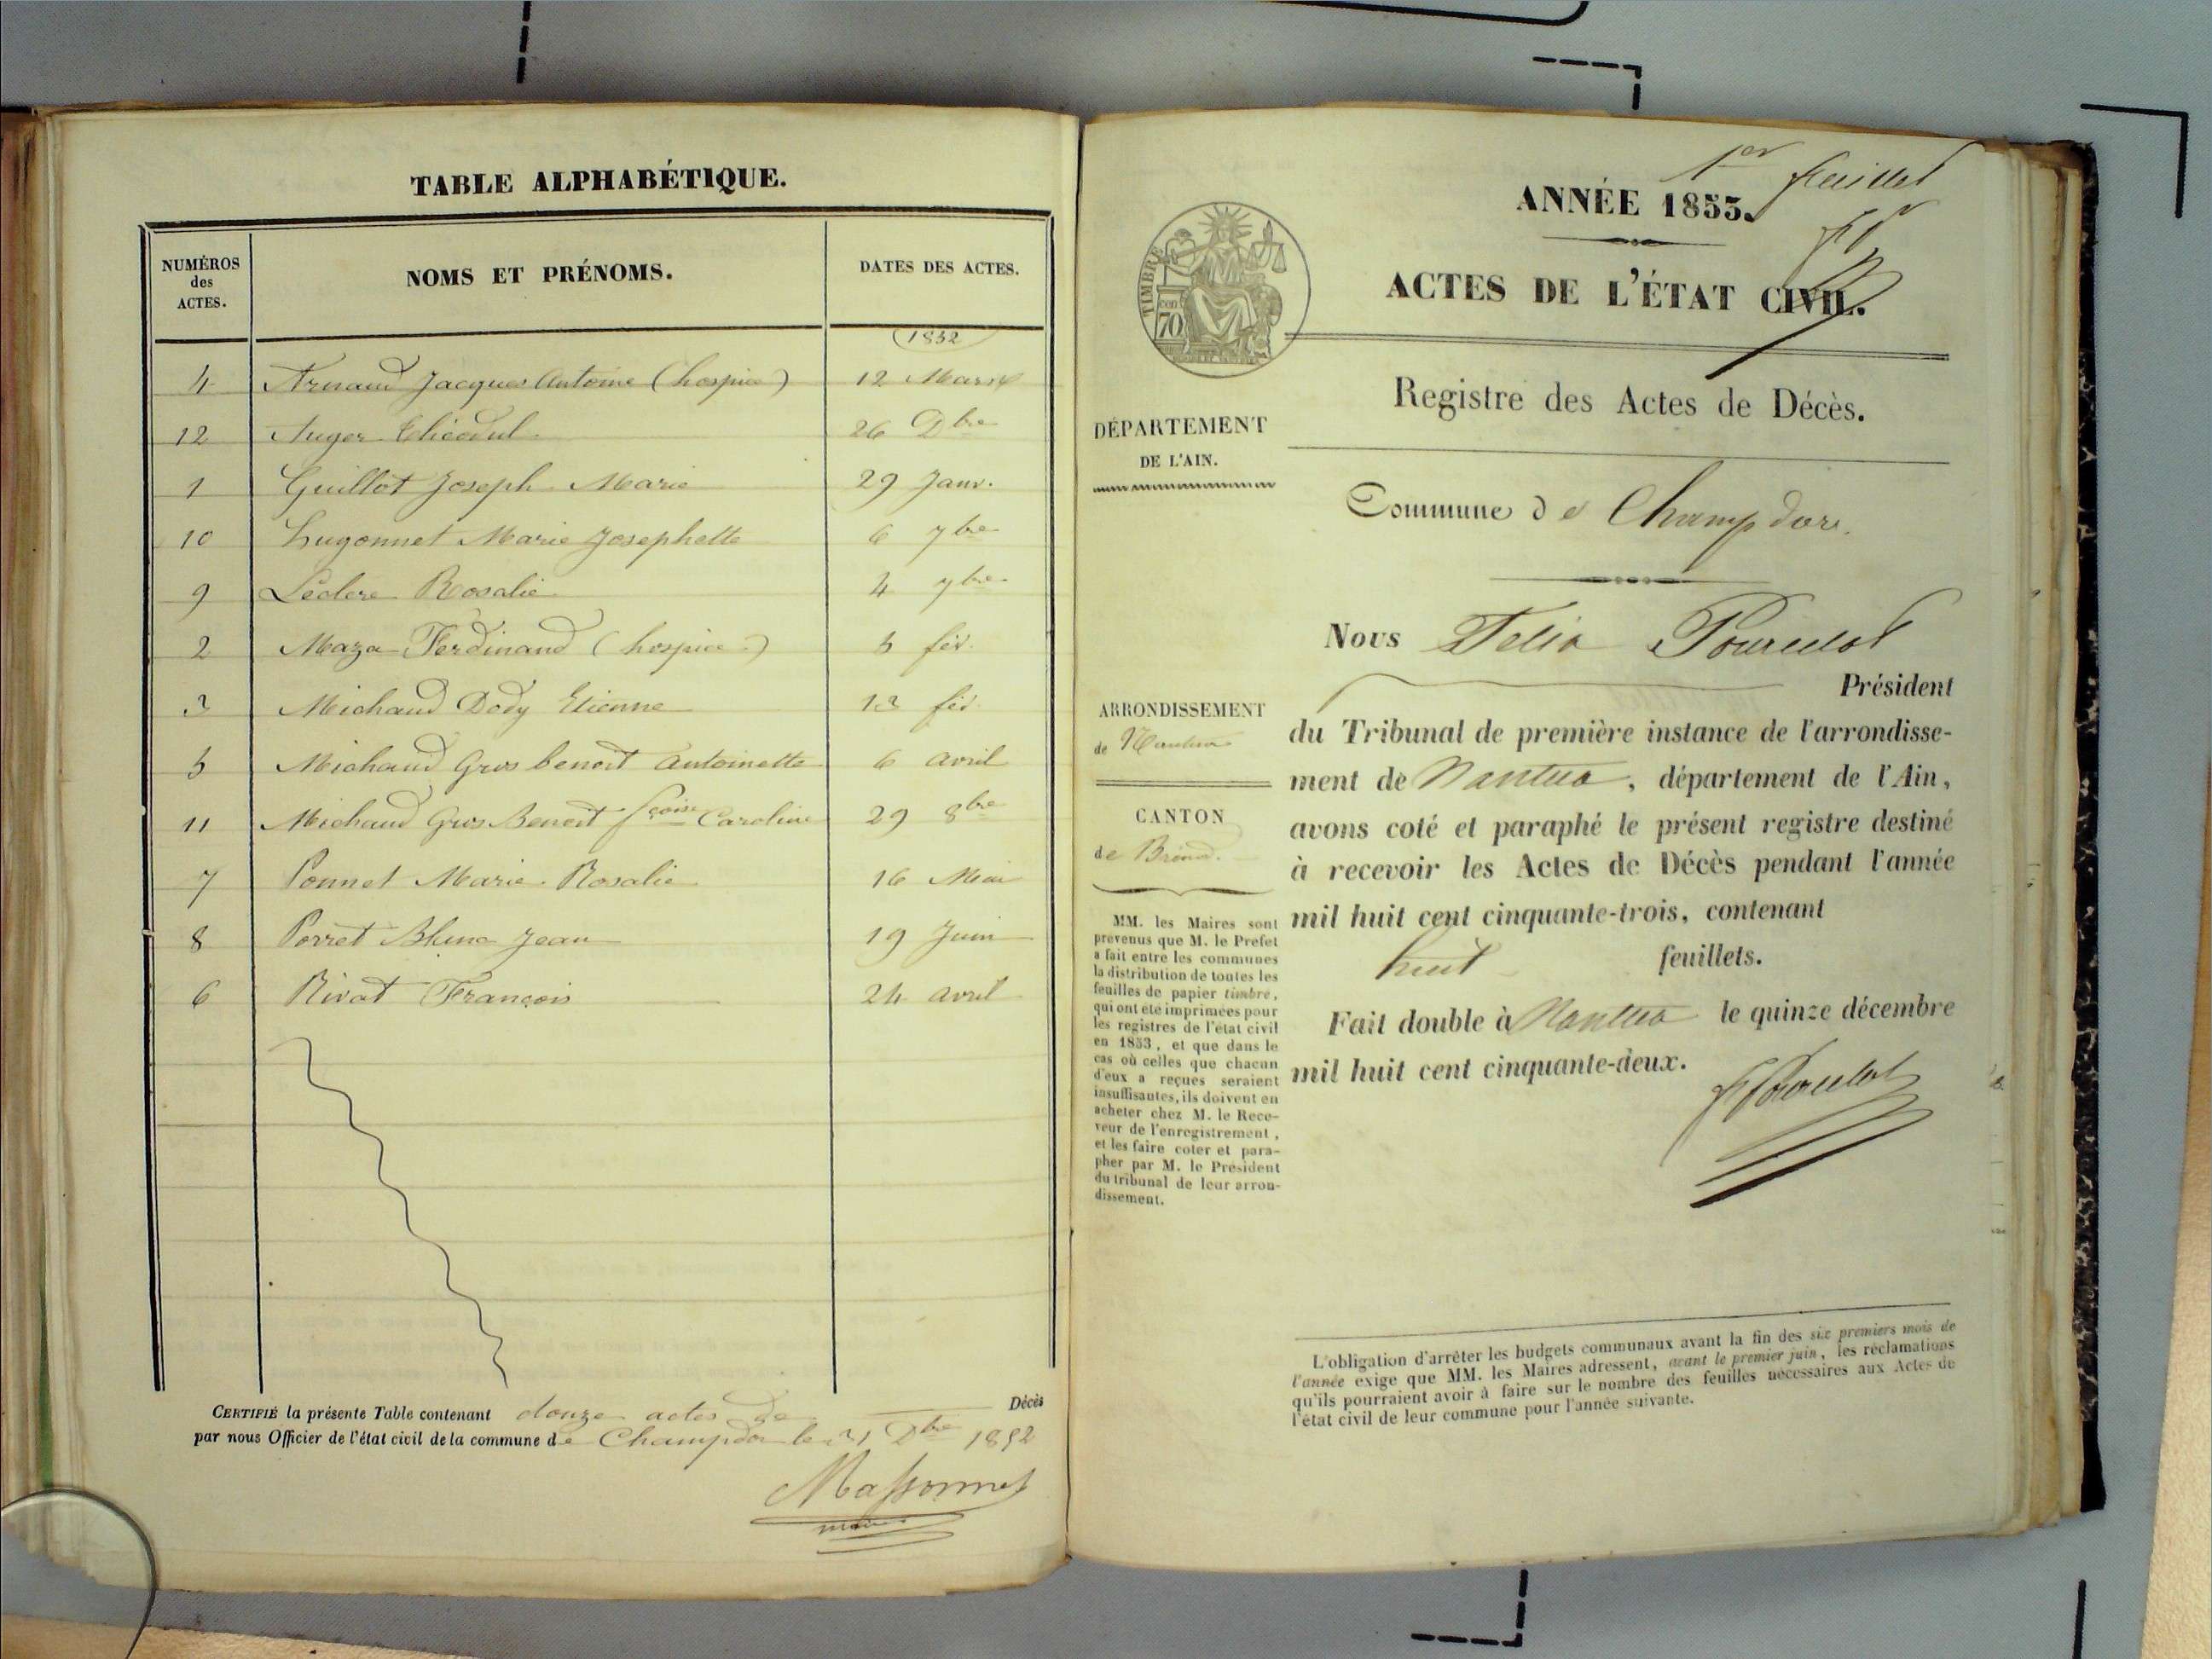 TABLE ALPHABÉTIQUE.
NUMÉROS des ACTES.
NOMS ET PRÉNOMS.
DATES DES ACTES.
1852
4 Arnaud Jacques Antoine (hospice) 12 Mars
12 Auger 26 Dbre
1 Guillot Joseph Marie 29 Janv.
10 Hugonnet Marie Josephette 6 7bre
9 Leclerc Rosalie 4 7bre
2 Maza Ferdinand (hospice) 5 fév.
3 Michaud Dody Etienne 13 fév.
5 Michaud Gros benoit Antoinette 6 avril
11 Michaud Gros Benoit fçoise Caroline 29 8bre
7 Ponnet Marie Rosalie 16 Mai
8 Porret Blanc Jean 19 Juin
6 Rivat François 24 avril
CERTIFIÉ la présente Table contenant douze actes de Décès
par nous Officier de l'état civil de la commune de Champdor le 31 Dbre 1852
Massonnet
maire
1er feuillet
ANNÉE 1853.
ACTES DE L'ÉTAT CIVIL.
TIMBRE
70
Registre des Actes de Décès.
DÉPARTEMENT
DE L'AIN.
Commune de Champdor.
Nous Félix Pourcelot
Président
du Tribunal de première instance de l'arrondisse-
ment de Nantua, département de l'Ain,
avons coté et paraphé le présent registre destiné
à recevoir les Actes de Décès pendant l'année
mil huit cent cinquante-trois, contenant
huit feuillets.
Fait double à Nantua le quinze décembre
mil huit cent cinquante-deux.
ARRONDISSEMENT
de Nantua
CANTON
de Brénod.
MM. les Maires sont
prévenus que M. le Préfet
a fait entre les communes
la distribution de toutes les
feuilles de papier timbré,
qui ont été imprimées pour
les registres de l'état civil
en 1853, et que dans le
cas où celles que chacun
d'eux a reçues seraient
insuffisantes, ils doivent en
acheter chez M. le Rece-
veur de l'enregistrement,
et les faire coter et para-
pher par M. le Président
du tribunal de leur arron-
dissement.
L'obligation d'arrêter les budgets communaux avant la fin des six premiers mois de
l'année exige que MM. les Maires adressent, avant le premier juin, les réclamations
qu'ils pourraient avoir à faire sur le nombre des feuilles nécessaires aux Actes de
l'état civil de leur commune pour l'année suivante.